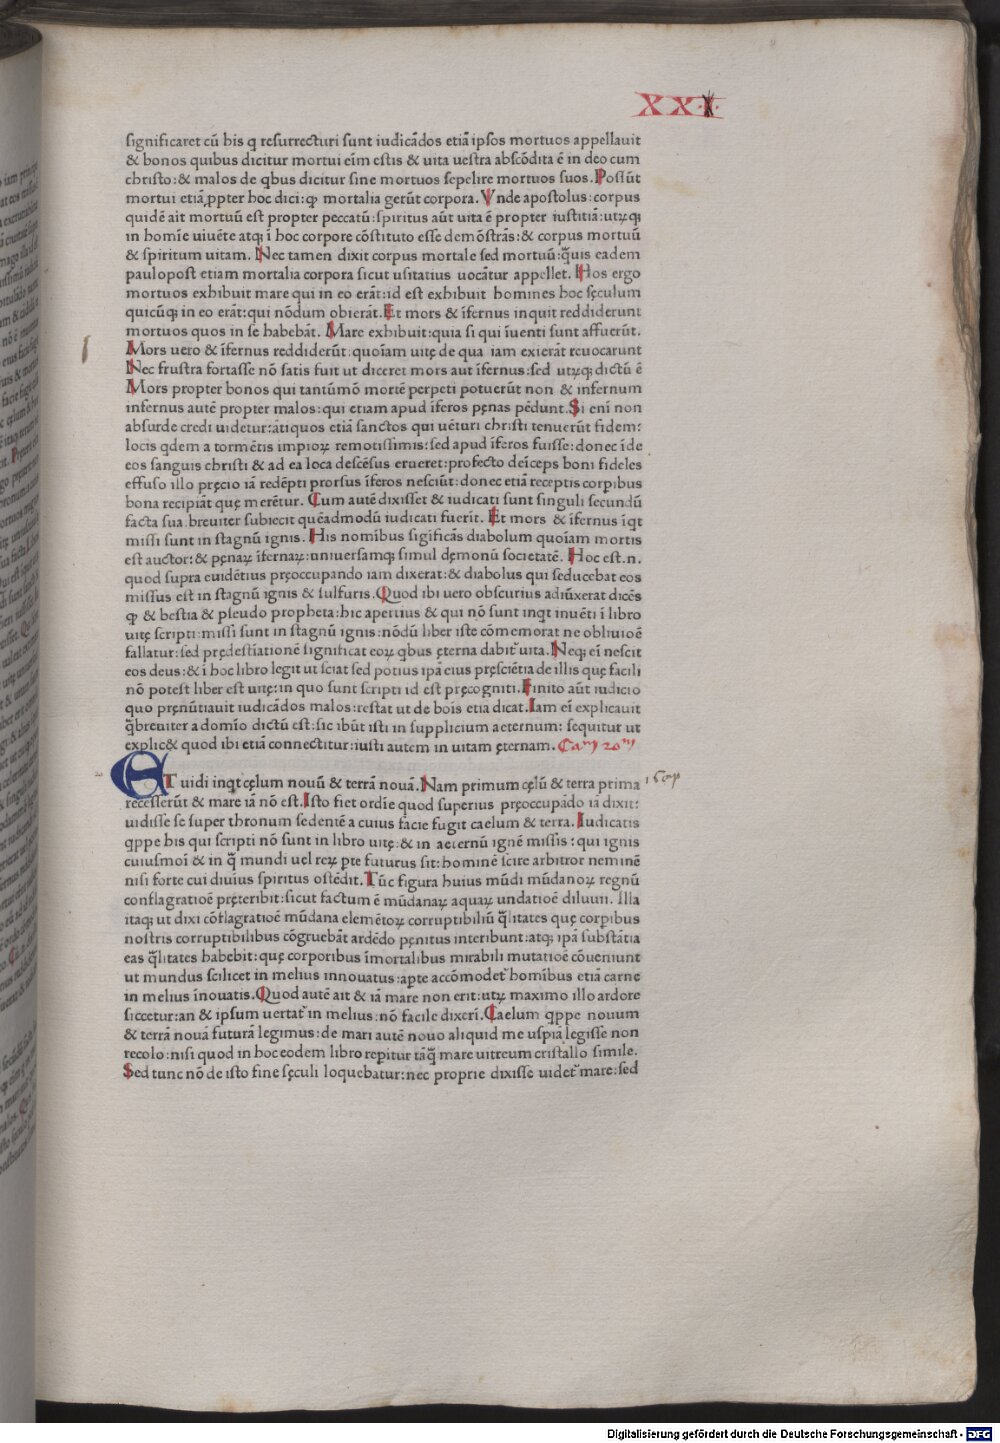 XXI
significaret cū his q resurrecturi sunt iudicādos etiā ipsos mortuos appellauit
& bonos quibus dicitur mortui eīm estis & uita uestra abscōdita ē in deo cum
christo:& malos de qbus dicitur sine mortuos sepelire mortuos suos. Possūt
mortui etiā ꝓpter hoc dici:ꝙ mortalia gerūt corpora. Vnde apostolus:corpus
quidē ait mortuū est propter peccatū:spiritus aūt uita ē propter iustitiā:utꝝqꝫ
in homīe uiuēte atqꝫ ī hoc corpore cōstituto esse demōstrās:& corpus mortuū
& spiritum uitam. Nec tamen dixit corpus mortale sed mortuū:q̄uis eadem
paulopost etiam mortalia corpora sicut usitatius uocātur appellet. Hos ergo
mortuos exhibuit mare qui in eo erāt:id est exhibuit homines hoc sęculum
quicūqꝫ in eo erāt:qui nōdum obierāt. Et mors & īfernus inquit reddiderunt
mortuos quos in se habebāt. Mare exhibuit:quia si qui īuenti sunt affuerūt.
Mors uero & īfernus reddiderūt:quoīam uitę de qua iam exierāt reuocarunt
Nec frustra fortasse nō satis fuit ut diceret mors aut īfernus:sed utꝝqꝫ dictū ē
Mors propter bonos qui tantūmō mortē perpeti potuerūt non & infernum
infernus autē propter malos:qui etiam apud īferos pęnas pēdunt. Si enī non
absurde credi uidetur:ātiquos etiā sanctos qui uēturi christi tenuerūt fidem:
locis qdem a tormētis impioꝝ remotissimis:sed apud īferos fuisse:donec īde
eos sanguis christi & ad ea loca descēsus erueret:profecto deīceps boni fideles
effuso illo pręcio iā redēpti prorsus īferos nesciūt:donec etiā receptis corpibus
bona recipiāt quę merētur. Cum autē dixisset & iudicati sunt singuli secundū
facta sua.breuiter subiecit quēadmodū iudicati fuerīt. Et mors & īfernus īqt
missi sunt in stagnū ignis. His nomībus sigificās diabolum quoīam mortis
est auctor:& pęnaꝝ īfernaꝝ:uniuersamqꝫ simul dęmonū societatē. Hoc est.n.
quod supra euidētius pręoccupando iam dixerat:& diabolus qui seducebat eos
missus est in stagnū ignis & sulfuris. Quod ibi uero obscurius adiūxerat dicēs
ꝙ & bestia & pseudo propheta:hic apertius & qui nō sunt inqt inuēti ī libro
uitę scripti:missi sunt in stagnū ignis:nōdū liber iste cōmemorat ne obliuioē
fallatur:sed prędestīationē significat eoꝝ qbus ęterna dabit᷑ uita. Neqꝫ eī nescit
eos deus:& ī hoc libro legit ut sciat sed potius ipā eius pręsciētia de illis quę falli
nō potest liber est uitę:in quo sunt scripti id est pręcogniti. Finito aūt iudicio
quo prenūtiauit iudicādos malos:restat ut de bois etia dicat. Iam eī explicauit
q̄breuiter a domīo dictū est:sic ibūt isti in supplicium aeternum: sequitur ut
explic& quod ibi etiā connectitur:iusti autem in uitam ęternam. Ca
ET uidi inqt cęlum nouū & terrā nouā. Nam primum cęlū & terra prima
recesserūt & mare iā nō est. Isto fiet ordīe quod superius pręoccupādo iā dixit:
uidisse se super thronum sedentē a cuius facie fugit caelum & terra. Iudicatis
qppe his qui scripti nō sunt in libro uitę:& in aeternū ignē missis : qui ignis
cuiusmoī & in q̄ mundi uel reꝝ pte futurus sit:hominē scire arbitror neminē
nisi forte cui diuīus spiritus ostēdit. Tūc figura huius mūdi mūdanoꝝ regnū
conflagratioē pręteribit:sicut factum ē mūdanaꝝ aquaꝝ undatioē diluuii. Illa
itaqꝫ ut dixi cōflagratioē mūdana elemētoꝝ corruptibiliū q̄litates quę corpibus
nostris corruptibilibus cōgruebāt ardēdo pęnitus interibunt:atqꝫ ipā substātia
eas q̄litates habebit:quę corporibus īmortalibus mirabili mutatioē cōueniunt
ut mundus scilicet in melius innouatus:apte accōmodet᷑ homībus etiā carne
in melius īnouatis. Quod autē ait & iā mare non erit:utꝝ maximo illo ardore
siccetur:an & ipsum uertat᷑ in melius:nō facile dixerī. Caelum qppe nouum
& terrā nouā futurā legimus:de mari autē nouo aliquid me uspiā legisse non
recolo:nisi quod in hoc eodem libro repitur tāq̄ mare uitreum cristallo simile.
Sed tunc nō de isto fine sęculi loquebatur:nec proprie dixisse uidet᷑ mare:sed
Digitalisierung gefördert durch die Deutsche Forschungsgemeinschaft - DFG